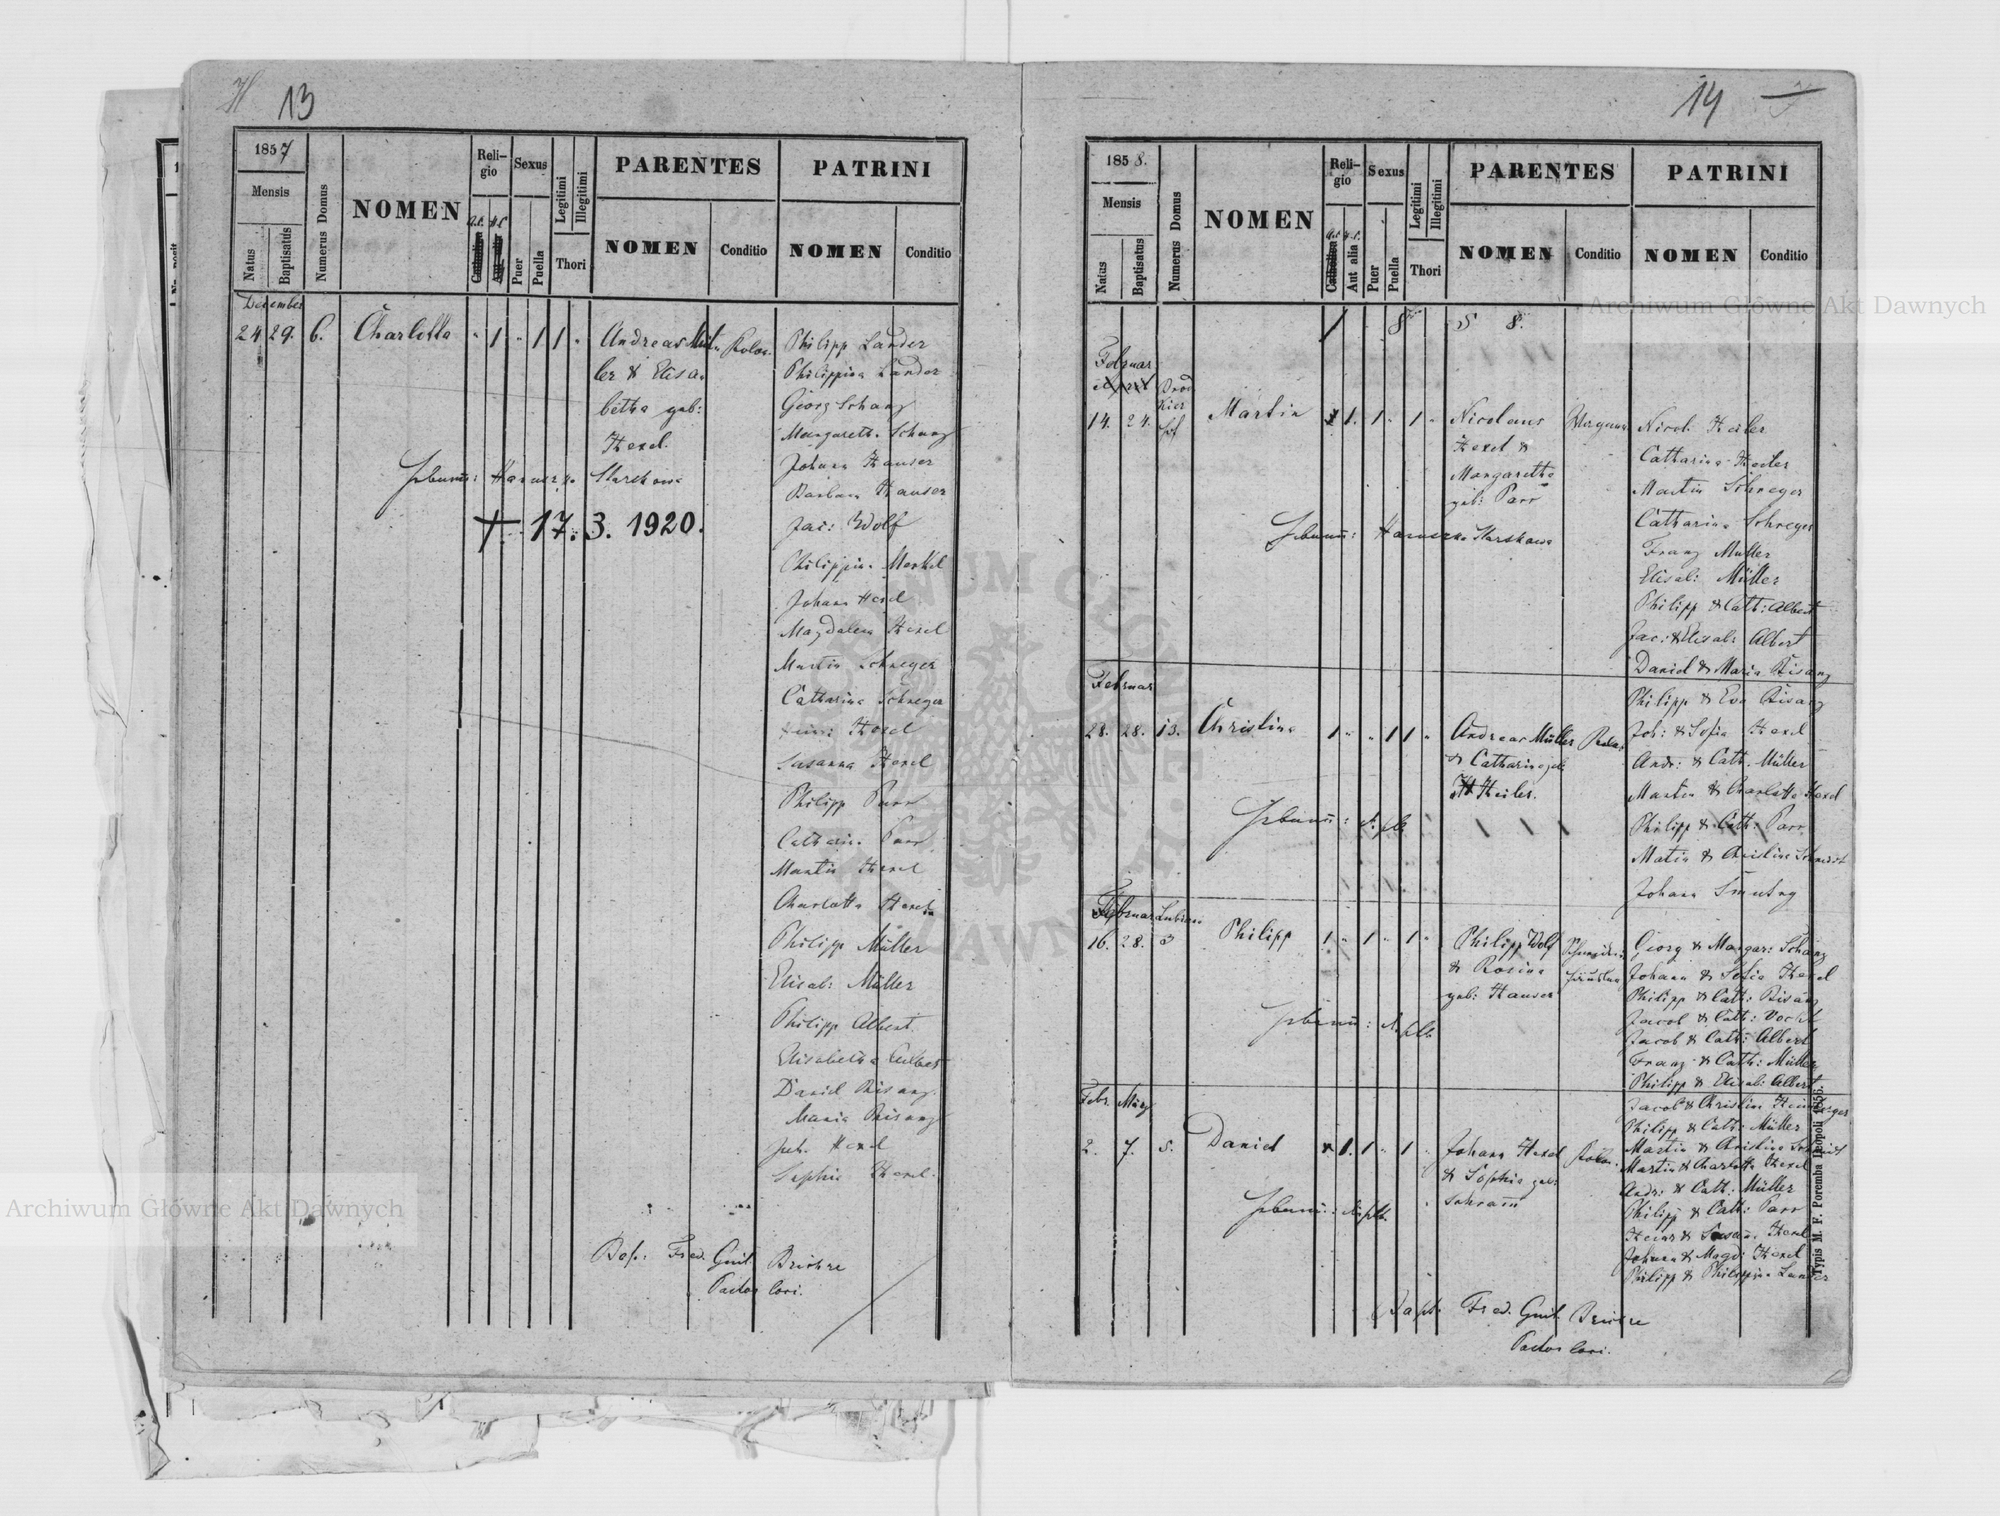 13
1857
Mensis
Natus
Baptisatus
Numerus Domus
NOMEN
Religio
Sexus
Puer
Puella
Legitimi
Illegitimi
Thori
PARENTES
NOMEN
Conditio
PATRINI
NOMEN
Conditio
December
24 29. 6. Charlotta " 1 " 1 1 " Andreas Mül-
ler & Elisa-
betha geb:
Hexel.
† 17. 3. 1920.
Philipp Lander
Philippina Lander
Georg Schanz
Margareth. Schanz
Johann Hauser
Barbara Hauser
Jac: Wolf
Philippin. Merkel
Johann Hexel
Magdalena Hexel
Martin Schreger
Catharina Schreger
Hexel
Susanna Hexel
Philipp Parr
Catharin. Parr
Martin Hexel
Charlotta Hexel
Philipp Müller
Elisab: Müller
Philipp Albert
Elisabetha Albert
Daniel Bisanz
Maria Bisanz
Joh. Hexel
Sophie Hexel.
Fred. Guil.
Pastor loci.
14
1858.
Mensis
Natus
Baptisatus
Numerus Domus
NOMEN
Religio
Catholica
Aut alia
Sexus
Puer
Puella
Legitimi
Illegitimi
Thori
PARENTES
NOMEN
Conditio
PATRINI
NOMEN
Conditio
Februar
14. 24. Martin 1. 1 " 1 " Nicolaus
Hexel &
Margaretha
geb: Parr
Nicol. Heiler
Catharina Heiler
Martin Schreger
Catharina Schreger
Franz Müller
Elisab: Müller
Philipp & Cath: Albert
Jac: & Elisab: Albert
Daniel & Maria Bisanz
Philipp & Eva Bisanz
Februar
28. 28. 13. Christina 1 " " 1 1 " Andreas Müller
& Catharina geb.
Heiler.
Joh: & Sofia Hexel
Andr: & Cath. Müller
Martin & Charlotta Hexel
Philipp & Cath: Parr
Matin & Cristine Schmidt
Johann Smutny
Februar
16. 28. 3 Philipp 1 " 1 " 1 " Philipp Wolf
& Rosina
geb: Hauser
Georg & Margar: Schanz
Johann & Sofia Hexel
Philipp & Cath: Bisanz
Jacob & Cath: Vocht
Jacob & Cath: Albert
Franz & Cath: Müller
Philipp & Elisab: Albert
Febr. März
2. 7. 5. Daniel 1. 1 " 1 " Johann Hexel
& Sophia geb:
Schram̄
Jacob & Christine Heinberger
Philipp & Cath: Müller
Martin & Cristine Schmidt
Martin & Charlotta Hexel
Andr: & Cath: Müller
Philipp & Cath: Parr
Heinr & Susan. Hexel
Johann & Magd: Hexel
Philipp & Philippina Lander
Bapt. Fred. Guil.
Pastor loci.
Typis M. F. Poremba Leopoli 1855.
Archiwum Główne Akt Dawnych
Archiwum Główne Akt Dawnych